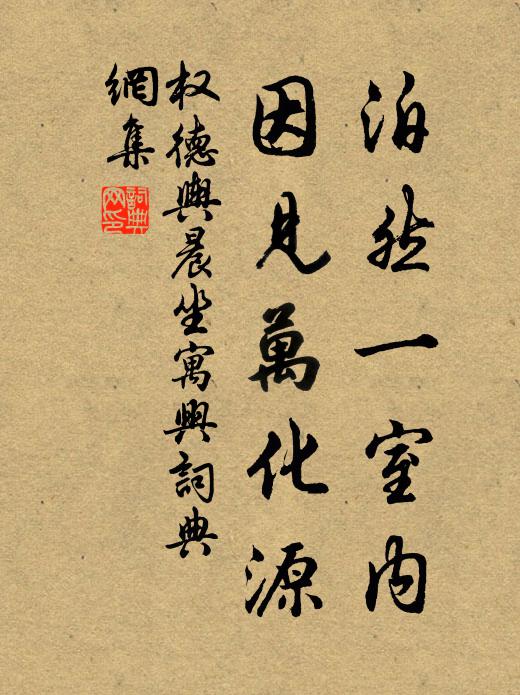 泊然一室內
因見萬化源
权德輿晨坐寓興詞典
網集
詞典
网印